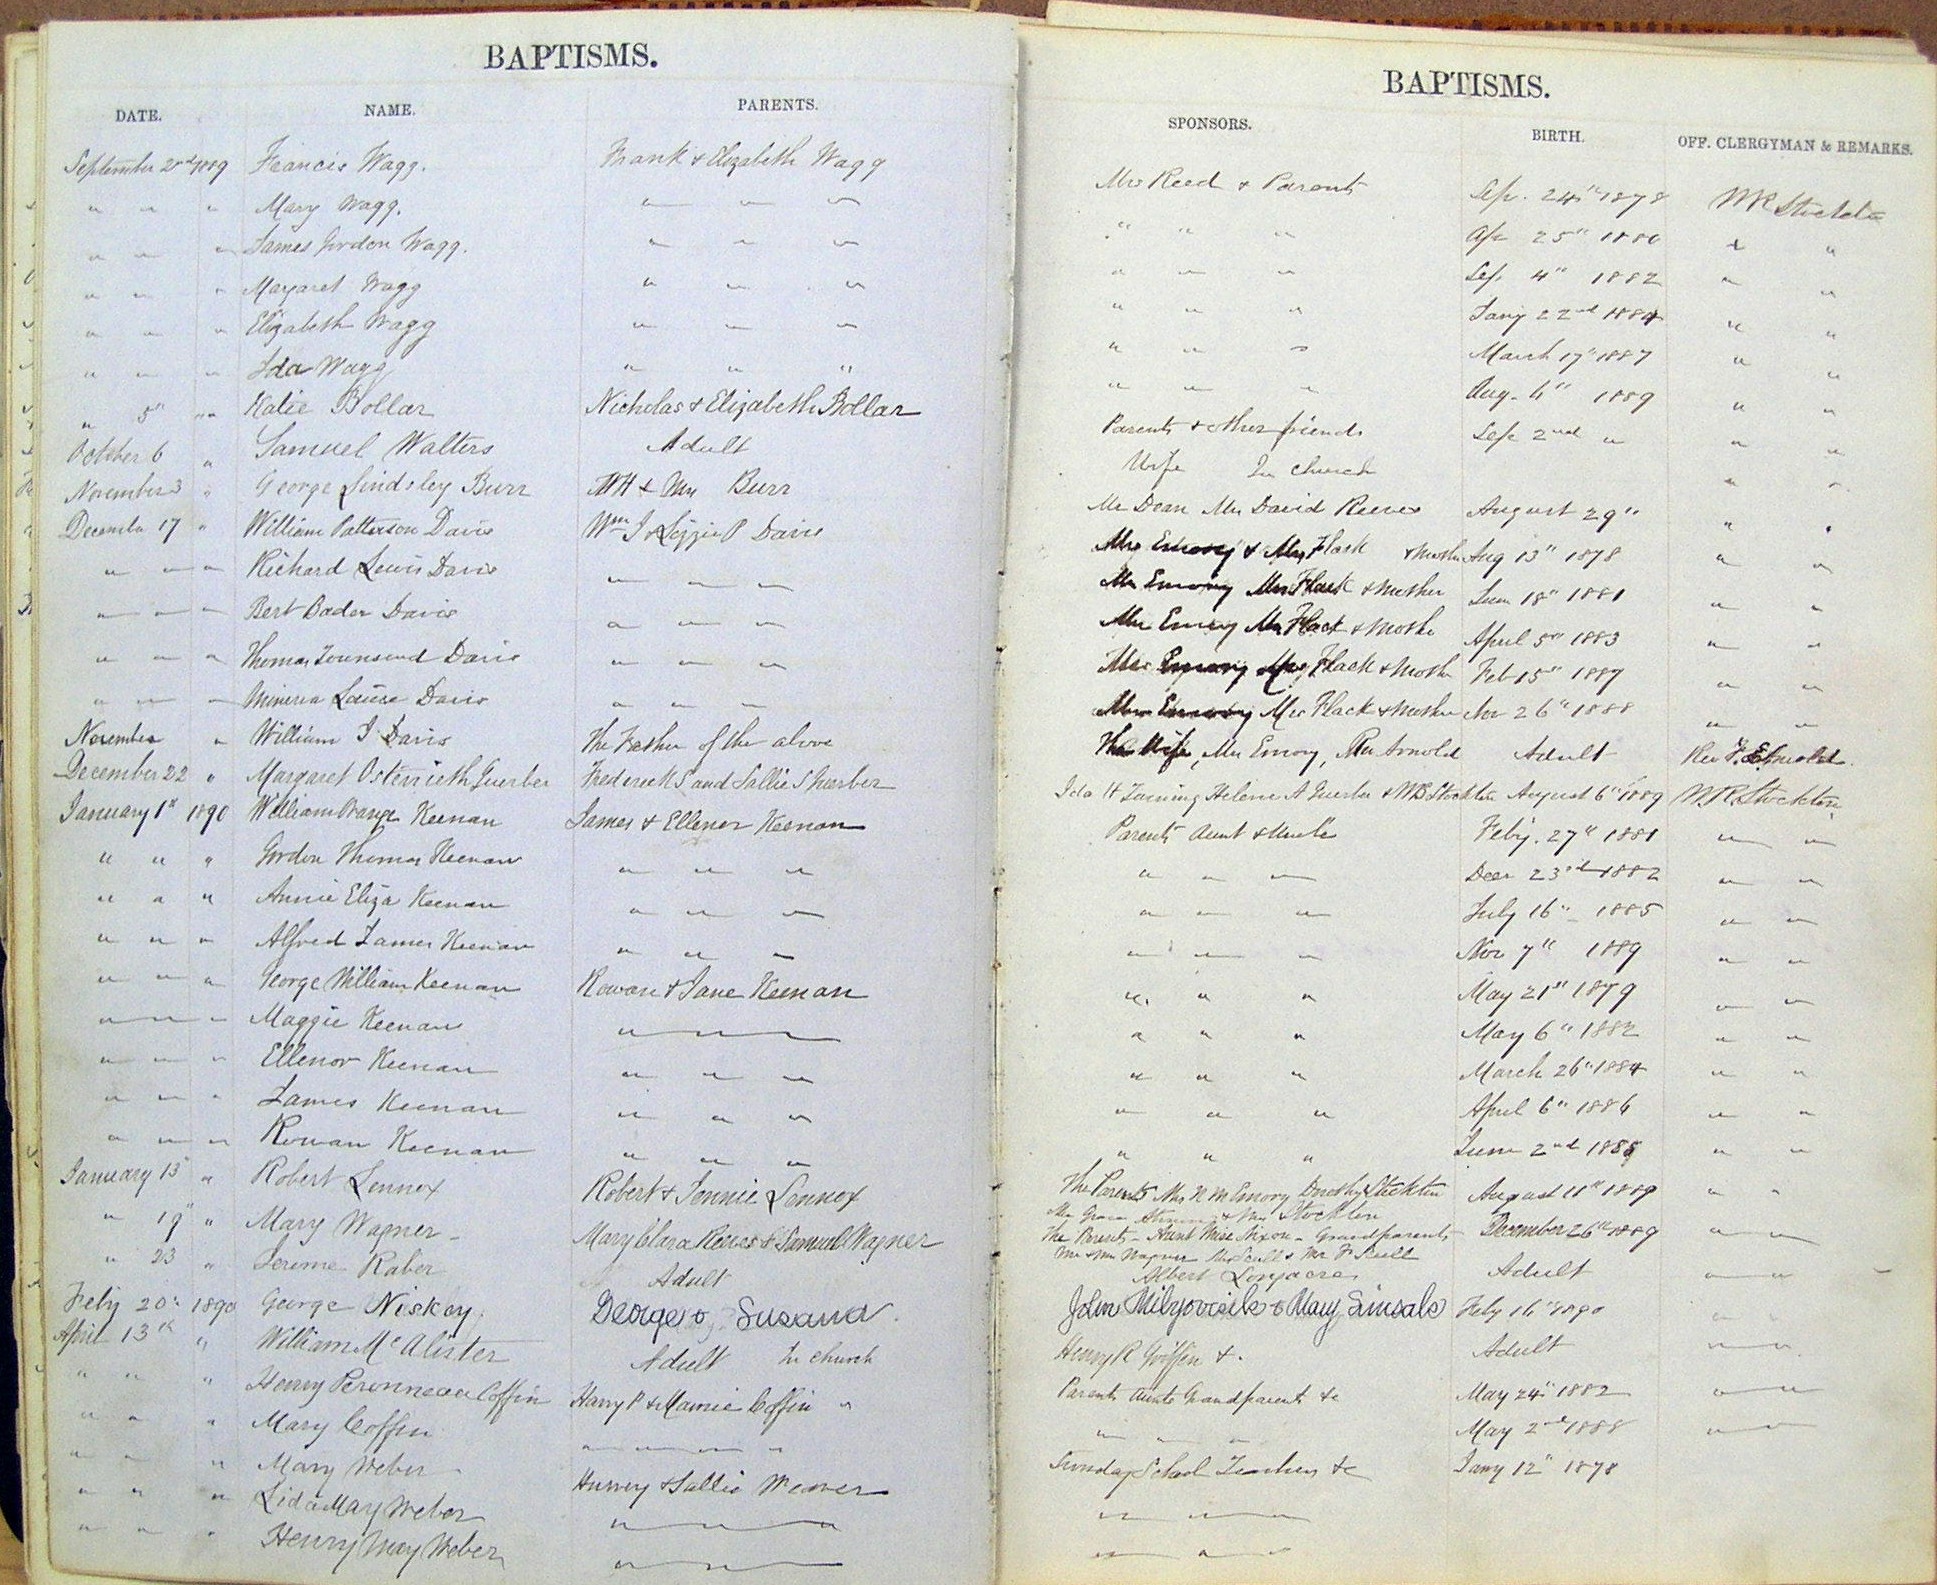 BAPTISMS.
DATE. NAME. PARENTS.
September 2nd 1889 Francis Wagg. Frank & Elizabeth Wagg
" " " Mary Wagg. " " "
" " " James Gordon Wagg. " " "
" " " Margaret Wagg " " "
" " " Elizabeth Wagg " " "
" " " Ida Wagg " " "
" 5" " " Katie Bollar Nicholas & Elizabeth Bollar
October 6 " Samuel Walters Adult
November 3 " George Lindsley Burr & Mrs Burr
December 17 " William Patterson Davis Wm I & Lizzie P Davis
" " " Richard Lewis Davis " " "
" " " Bert Bader Davis " " "
" " " Thomas Townsend Davis " " "
" " " Minerva Louise Davis " " "
November " William I Davis The Father of the above
December 22 " Margaret Osterrieth Guerber Frederick S and Sallie S Guerber
January 1st 1890 William Keenan James & Ellenor Keenan
" " " Gordon Thomas Keenan " " "
" " " Annie Eliza Keenan " " "
" " " Alfred James Keenan " " "
" " " George William Keenan Rowan & Jane Keenan
" " " Maggie Keenan " " "
" " " Ellenor Keenan " " "
" " " James Keenan " " "
" " " Rowan Keenan " " "
January 13" " Robert Lennox Robert & Jennie Lennox
" 19" " Mary Wagner Mary Clara Reeves & Samuel Wagner
" 23 " Jerome Raber Adult
Feby 20" 1890 George Niskey. George & Susanna.
April 13th " William Mc Alister Adult In church
" " " Henry Peronneau Coffin Harry P & Mamie Coffin "
" " " Mary Coffin " " " "
" " " Mary Weber Harvey & Sallie Weaver
" " " Lida May Weber " " "
" " " Henry May Weber " " "
BAPTISMS.
SPONSORS. BIRTH. OFF. CLERGYMAN & REMARKS.
Mrs Reed & Parents Sep. 24th 1878 WR Stockton
" " " Ap 25" 1880 " "
" " " Sep 4" 1882 " "
" " " Jany 22nd 1884 " "
" " " March 17" 1887 " "
" " " Aug. 4" 1889 " "
Parents & other friends Sep 2nd " " "
Wife In church " "
Mr Dean Mrs David Reeves August 29" " "
Mrs Emory & Mrs Flack & Mother Aug 13" 1878 " "
Mrs Emory Mrs Flack & Mother June 18" 1881 " "
Mrs Emory Mrs Flack & Mother April 5" 1883 " "
Mrs Emory Mrs Flack & Mother Feb 15" 1887 " "
Mrs Emory Mrs Flack & Mother Nov 26" 1888 " "
The Wife, Mrs Emory, Rev Arnold Adult Rev F. E. Arnold.
Ida H Helene A Guerber & WR Stockton August 6" 1889 W.R. Stockton
Parents Aunt & Uncle Feby. 27" 1881 " "
" " " Decr 23rd 1882 " "
" " " July 16" 1885 " "
" " " Nov 7" 1889 " "
" " " May 21st 1879 " "
" " " May 6" 1882 " "
" " " March 26" 1884 " "
" " " April 6" 1886 " "
" " " June 2nd 1888 " "
The Parents Mrs N M Emory Dorothy Stockton August 11" 1889 " "
Mrs Grace & Mrs Stockton
The Parents - Aunt Miss Nixon - Grandparents December 26th 1889 " "
Mr & Mrs Wagner Mrs Scull & Mr F Scull
Albert Longacre Adult " "
John & Mary Feby 16" 1890 " "
Henry R Griffen &. Adult " "
Parents Aunts Grandparents &c May 24" 1882 " "
" " " May 2nd 1888 " "
Sunday School Teachers &c Jany 12" 1878
" " "
" " "